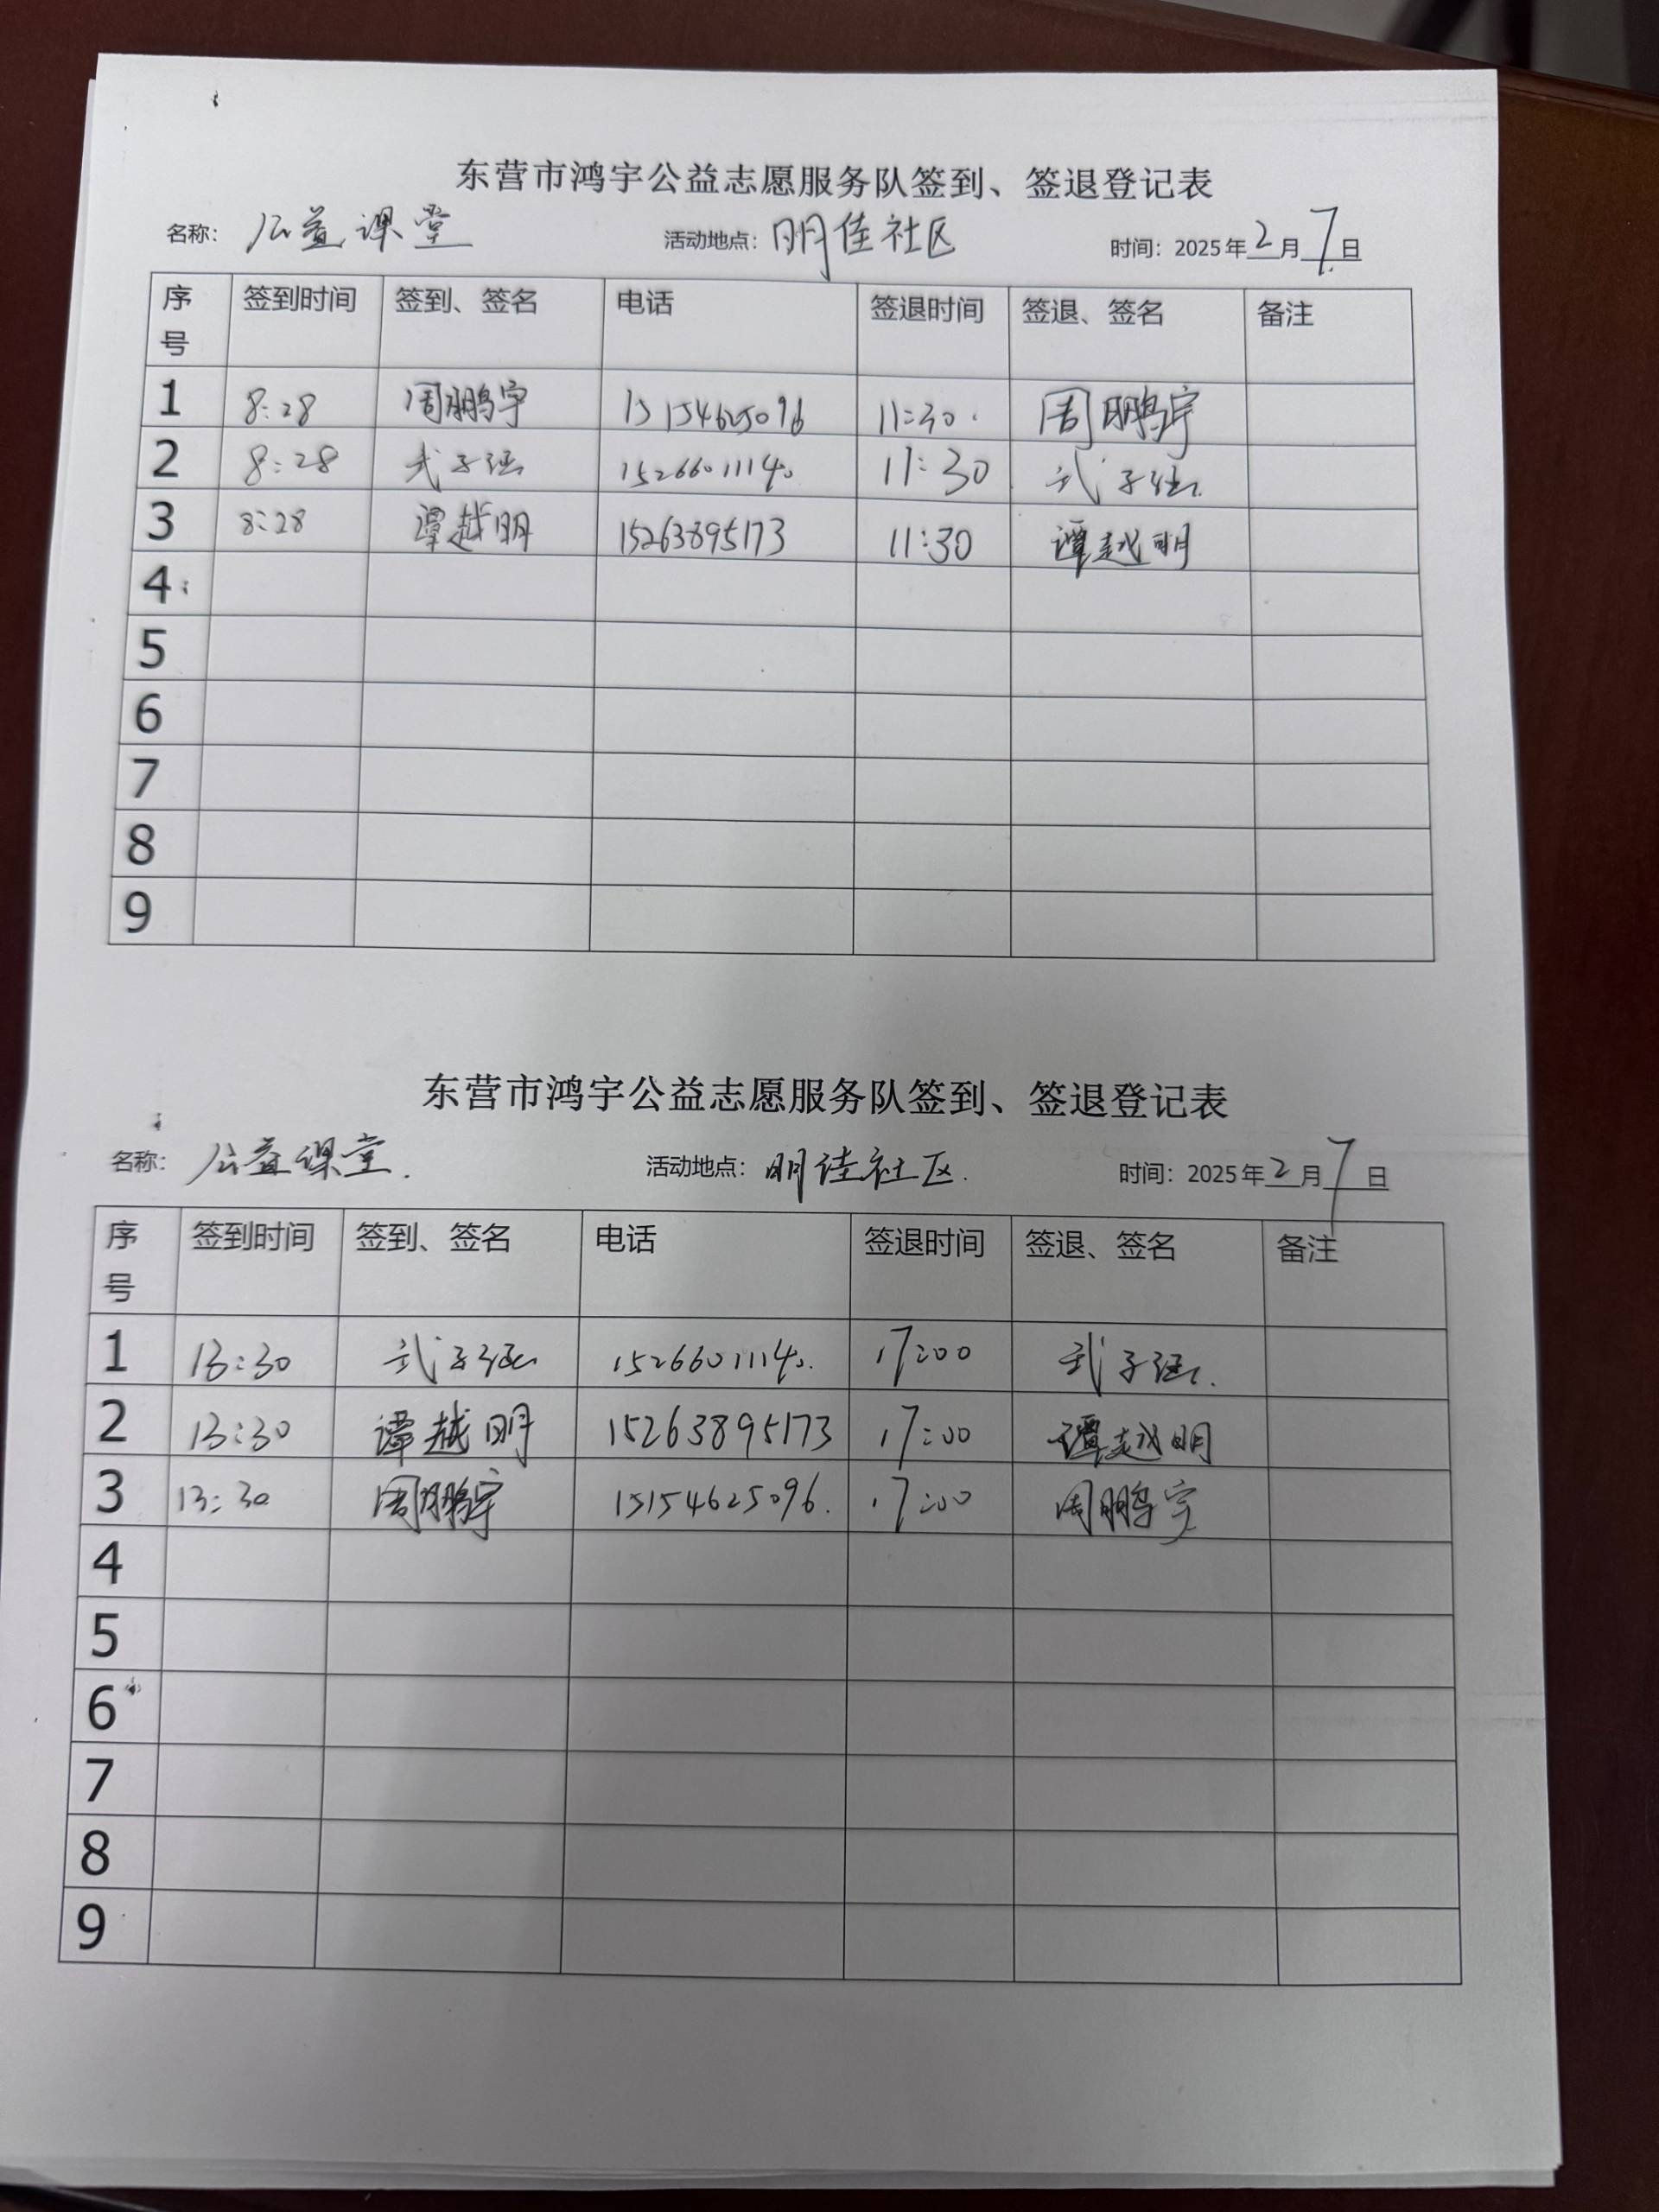 东营市鸿宇公益志愿服务队签到、签退登记表
名称：公益课堂 活动地点：明佳社区 时间：2025年2月7日
序号 签到时间 签到、签名 电话 签退时间 签退、签名 备注
1 8:28 周鹏宇 15154625096 11:30 周鹏宇
2 8:28 武子涵 15266011140 11:30 武子涵
3 8:28 谭越明 15263895173 11:30 谭越明
4
5
6
7
8
9
东营市鸿宇公益志愿服务队签到、签退登记表
名称：公益课堂. 活动地点：明佳社区. 时间：2025年2月7日
序号 签到时间 签到、签名 电话 签退时间 签退、签名 备注
1 13:30 武子涵 15266011140. 17:00 武子涵.
2 13:30 谭越明 15263895173 17:00 谭越明
3 13:30 周鹏宇 15154625096. 17:00 周鹏宇
4
5
6
7
8
9